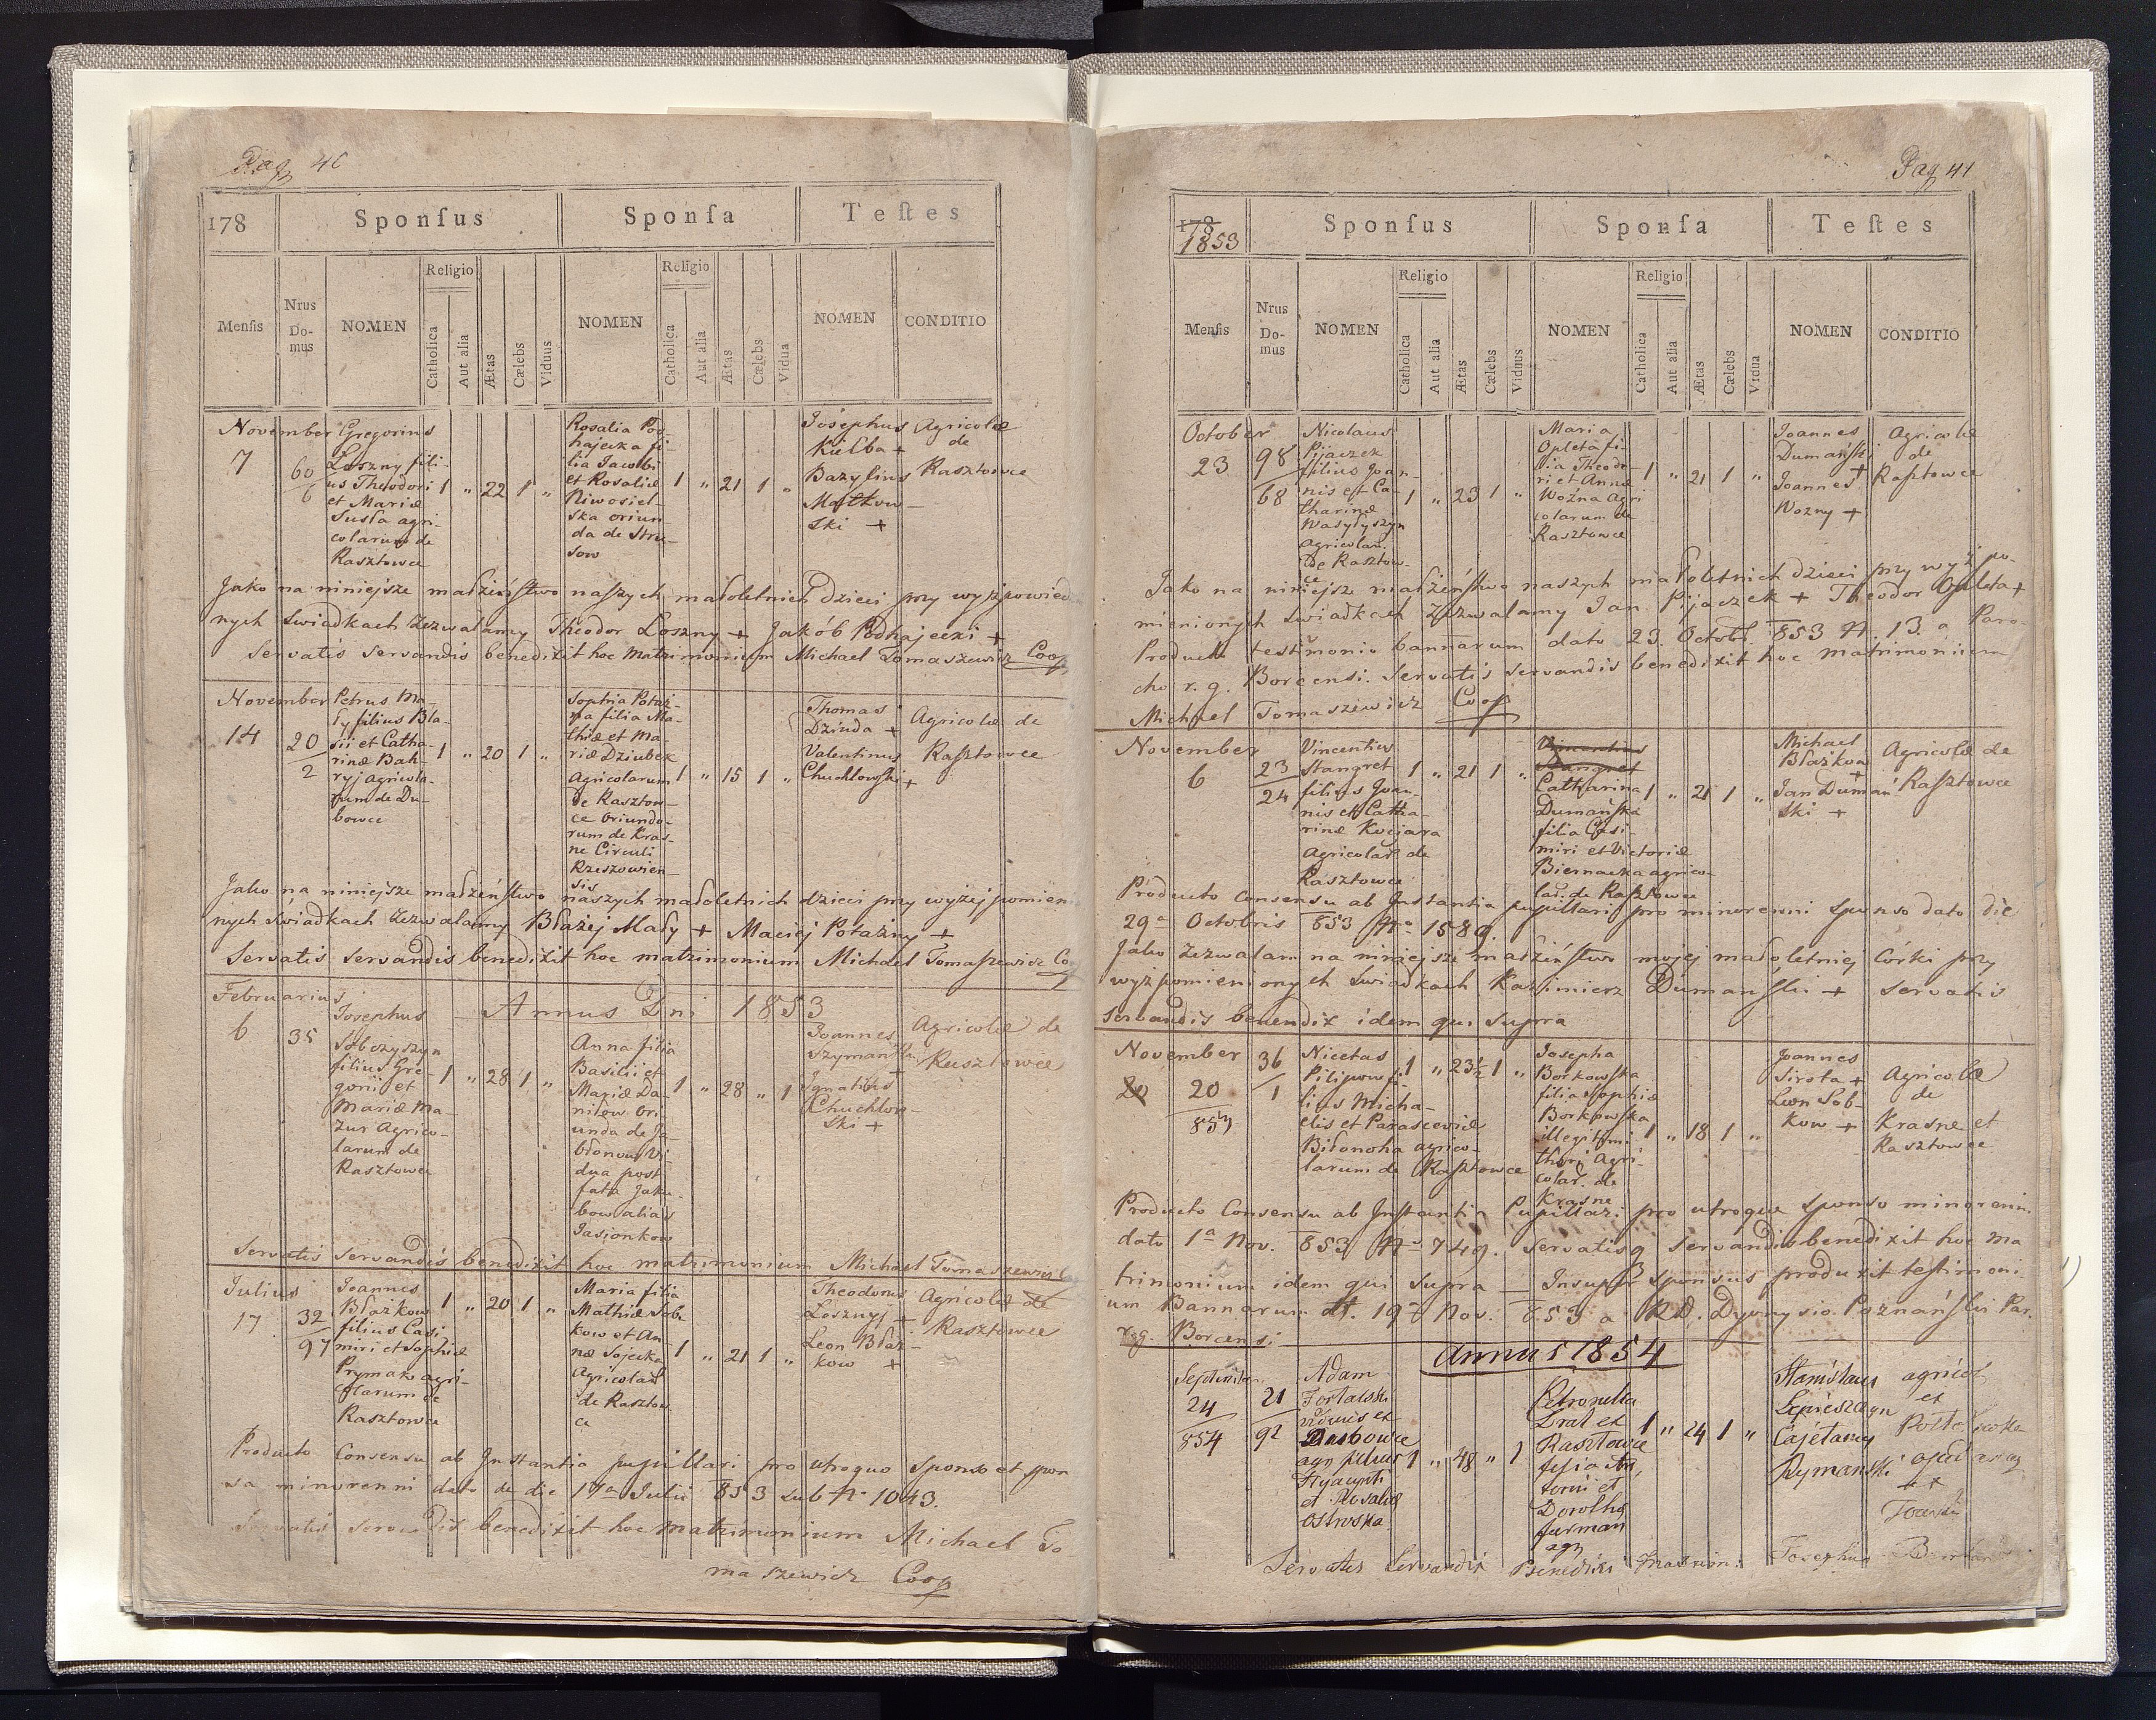 Pag 40
178 Sponſus Sponſa Teſtes
Menſis Nrus Do-mus NOMEN Religio Catholica Aut alia Ætas Cælebs Viduus NOMEN Religio Catholica Aut alia Ætas Cælebs Vidua NOMEN CONDITIO
November
7
60
6
Gregorius
Loszny fili-
us Theodori
et Mariæ
Susła agri-
colarum de
Rasztowce
1 " 22 1 "
Rosalia Pod-
hajecka fi-
lia Jacobi
et Rosaliæ
Niwosiel-
ska oriun-
da de Stru-
sow
1 " 21 1 "
Josephus
Kiełba +
Bazylius
Motkow-
ski +
Agricolæ
de
Rasztowce
Jako na niniejsze małżeństwo naszych małoletnich dzieci przy wyżpowied
nych świadkach zezwalamy Theodor Loszny + Jakób Podhajecki +
Servatis servandis benedixit hoc Matrimonium Michael Tomaszewicz Coop
November
14
20
2
Petrus Ma-
ły filius Bla-
sii et Catha-
rinæ Bah-
ryj agricola-
rum de Du-
bowce
1 " 20 1 "
Sophia Potaż-
na filia Ma-
thiæ et Ma-
riæ Dziubek
Agricolarum
de Rasztow-
ce oriundo-
rum de Kras-
ne Circuli
Rzeszowien-
sis
1 " 15 1 "
Thomas
Dziuda +
Valentinus
Chuchlowski +
Agricolæ de
Rasztowce
Jako na niniejsze małżeństwo naszych małoletnich dzieci przy wyżej pomien
nych świadkach zezwalamy Błażej Mały + Maciej Potażny +
Servatis servandis benedixit hoc matrimonium Michael Tomaszewicz Co
Annus Dni 1853
Februarius
6
35
Josephus
Sobczyszyn
filius Gre-
gorii et
Mariæ Ma-
zur Agrico-
larum de
Rasztowce
1 " 28 1 "
Anna filia
Basilii et
Mariæ Da-
nilow ori-
unda de Ja-
błonow Vi-
dua post
fata Jaku-
bow alias
Jasionkow
1 " 28 " 1
Joannes
Szymański +
Ignatius
Chuchlow-
ski +
Agricolæ de
Rasztowce
Servatis servandis benedixit hoc matrimonium Michael Tomaszewicz
Julius
17
32
97
Joannes
Błażkow
filius Casi
miri et Sophiæ
Prymak agri-
colarum de
Rasztowce
1 " 20 1 "
Maria filia
Mathiæ Sob-
kow et An-
næ Sojecka
Agricolar
de Rasztow
ce
1 " 21 1 "
Theodorus
Losznyj +
Leon Błaż-
kow +
Agricolæ de
Rasztowce
Producto Consensu ab Instantia pupillari pro utroquo sponso et spon
sa minorenni dato de die 14a Julii 853 sub N 1043.
Servatis servandis benedixit hoc matrimonium Michael To-
maszewicz Coop
Pag 41
178
1853
Sponſus Sponſa Teſtes
Menſis Nrus Do-mus NOMEN Religio Catholica Aut alia Ætas Cælebs Viduus NOMEN Religio Catholica Aut alia Ætas Cælebs Vidua NOMEN CONDITIO
October
23
98
68
Nicolaus
Pijaczek
filius Joan-
nis et Ca-
tharinæ
Wasylyszyn
Agricolar.
de Rasztow-
ce
1 " 23 1 "
Maria
Opleta fi-
lia Theodo-
ri et Annæ
Wozna Agri
colarum de
Rasztowce
1 " 21 1 "
Joannes
Dumański
+
Joannes
Wozny +
Agricolæ
de
Rasztowce
Jako na niniejsze małżeństwo naszych małoletnich dzieci przy wyż po-
mienionych świadkach zezwalamy Jan Pijaczek + Theodor Opleta +
Producto testimonio bannarum dato 23. Octobr. 853 N. 13. a Paro-
cho r. g. Borcensi. Servatis servandis benedixit hoc matrimonium
Michael Tomaszewicz Coop
November
6
23
24
Vincentius
Stangret
filius Joan-
nis et Catha-
rinæ Kociara
Agricolar de
Rasztowce
1 " 21 1 "
Vincentius
Stangret
Catharina
Dumańska
filia Casi-
miri et Victoriæ
Biernacka agrico-
lar. de Rasztowce
1 " 21 1 "
Michael
Błażkow
+
Jan Dumań
ski +
Agricolæ de
Rasztowce
Producto Consensu ab Instantia pupillari pro minorenni sponso dato die
29a Octobris 853 No 1589.
Jako zezwalam na niniejsze małżeństwo mojej małoletniej Córki przy
wyżpomienionych świadkach Kazimierz Dumański + Servatis
servandis benendix idem qui supra
November
20
20
853
36
1
Nicetas
Pilipow fi-
lius Micha-
elis et Parasceviæ
Biłonoha agrico-
larum de Rasztowce
1 " 23½ 1 "
Josepha
Borkowska
filia Sophiæ
Borkowska
illegitimi
thori Agri-
colar. de
Krasne
1 " 18 1 "
Joannes
Sirota +
Leon Sob-
kow +
Agricolæ
de
Krasne et
Rasztowce
Producto Consensu ab Instantia Pupillari pro utroque sponso minorenni
dato 1a Nov. 853 No 749. Servatisq servandis benedixit hoc ma
trimonium idem qui supra Insuper sponsus produxit testimoni
um Bannarum dt. 19a Nov. 853 a R.D. Dyonysio Poznański Par.
r. g. Borcensi
Annus 1854
Septembr
24
854
21
92
Adam
viduus et
Dubowce
Hyacynti
et Rosaliæ
Ostroska
1 " 48 " 1
Petronella
Drat et
Rasztowce
filia An
tonii et
Dorothea
furman
agr
1 " 24 1 "
Stanislaus
Cajetany
Rymanski
agricol
et
Servatis Servandis Benedixi Matrim: Josephus